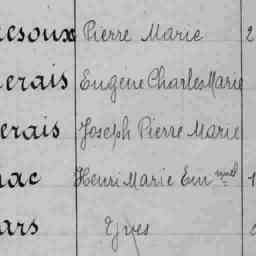 esoux Pierre Marie 2
erais Eugène Charles Marie
erais Joseph Pierre Marie
ac Henri Marie Emmuel 1
ars Yves